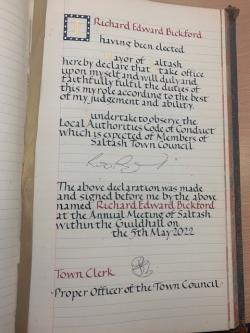 Richard Edward Bickford
having been elected
ayor of altash
hereby declare that take office
upon myself and will duly and
faithfully fulfil the duties of
this my role according to the best
of my judgement and ability.
undertake to observe the
Local Authorities Code of Conduct
which is expected of Members of
Saltash Town Council
The above declaration was made
and signed before me by the above
named Richard Edward Bickford
at the Annual Meeting of Saltash
within the Guildhall on
the 5th May 2022
Town Clerk
Proper Officer of the Town Council